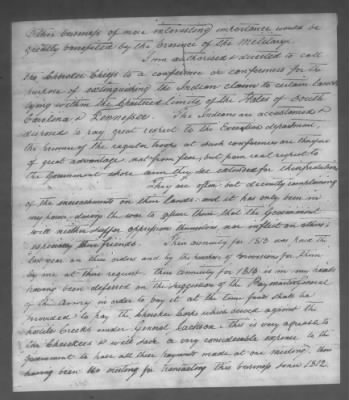 Other business of more interesting importance would be
greatly benefited by the presence of the Military.
I am authorised & directed to call
the Cherokee Chiefs to a conference or conferences for the
purpose of extinguishing the Indian claim to certain lands
lying within the Chartered limits of the States of South
Carolina & Tennessee. The Indians are accustomed &
disposed to pay great respect to the Executive department,
the presence of the regular troops at such conferences are therefore
of great advantage, not from fear, but from real respect to
the Government whose arm they see extended for their protection.
They are often but decently complaining
of the encroachments on their lands and it has only been in
my power, during the war to assure them that the Government
will neither suffer oppression themselves nor inflict on others,
especially their friends. Their annuity for 1813 was paid the
last year on their orders and by the purchase of provisions for them
by me at their request. Their annuity for 1814 is in my hands
having been deferred on the suggestion of the Paymaster General
of the Army in order to pay it at the time funds shall be
provided to pay the Cherokee Corps which served against the
hostile Creeks under General Jackson. This is very agreeable to
the Cherokees & will save a very considerable expense to the
Government to have all these payments made at one meeting, there
having been no meeting for transacting this business since 1812.